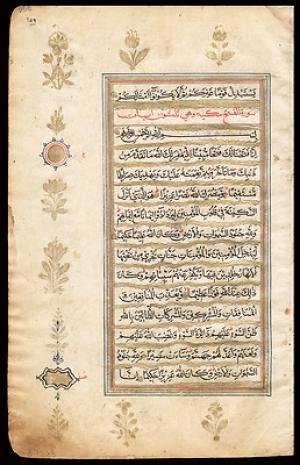 يستبدل قوما غيركم ثم لا يكونوا امثالكم
سورة الفتح مكية وهي ثلثون
بسم الله الرحمن الرحيم
إنا فتحنا لك فتحا مبينا ليغفر لك الله ما تقدم من
ذنبك وما تأخر ويتم نعمته عليك ويهديك صراطا
مستقيما وينصرك الله نصرا عزيزا هو الذي أنزل
السكينة في قلوب المؤمنين ليزدادوا إيمانا مع إيمانهم
ولله جنود السموات والأرض وكان الله عليما حكيما
ليدخل المؤمنين والمؤمنات جنات تجري من تحتها
الأنهار خالدين فيها ويكفر عنهم سيئاتهم وكان
ذلك عند الله فوزا عظيما ويعذب المنافقين
والمنافقات والمشركين والمشركات الظانين بالله
ظن السوء عليهم دائرة السوء وغضب الله عليهم
ولعنهم وأعد لهم جهنم وساءت مصيرا ولله جنود
السموات والأرض وكان الله عزيزا حكيما إنا